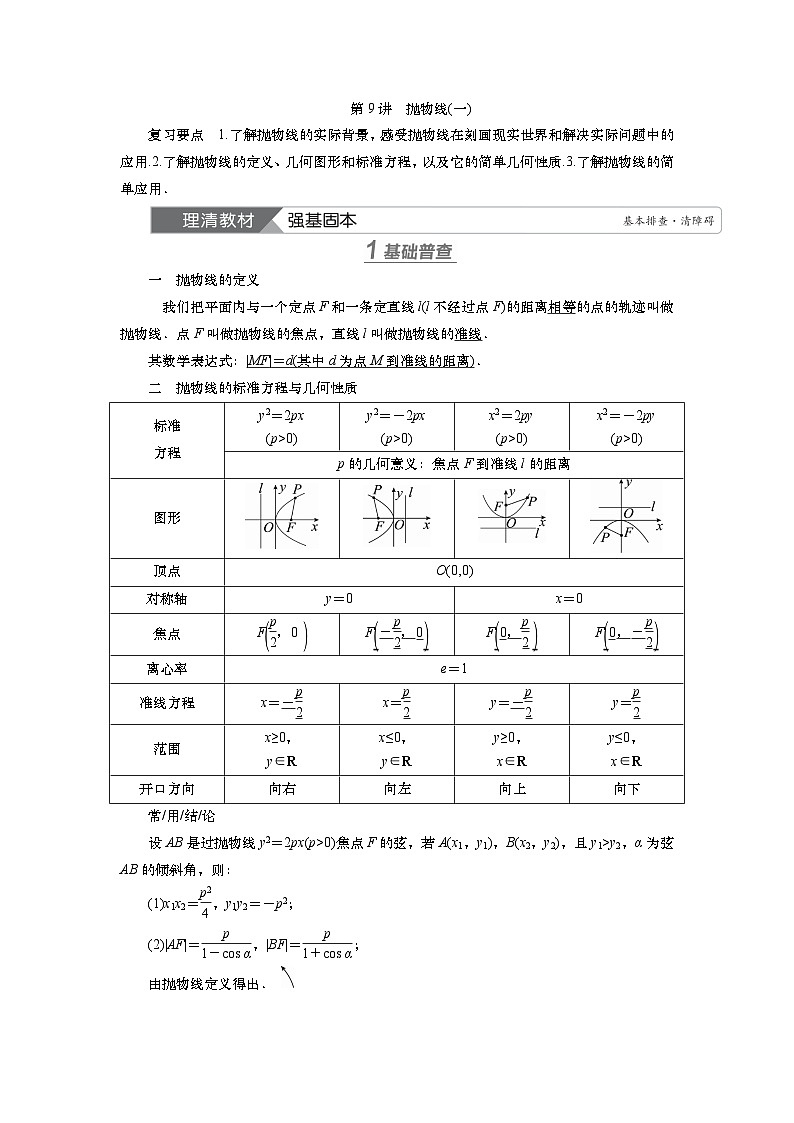 第9讲　抛物线(一)
复习要点　1.了解抛物线的实际背景，感受抛物线在刻画现实世界和解决实际问题中的
应用.2.了解抛物线的定义、几何图形和标准方程，以及它的简单几何性质.3.了解抛物线的简
单应用．
理清教材 强基固本 基本排查·清障碍
1 基础普查
一　抛物线的定义
我们把平面内与一个定点F和一条定直线l(l不经过点F)的距离相等的点的轨迹叫做
抛物线．点F叫做抛物线的焦点，直线l叫做抛物线的准线．
其数学表达式：|MF|＝d(其中d为点M到准线的距离)．
二　抛物线的标准方程与几何性质
标准
方程
y²＝2px
(p>0)
y²＝－2px
(p>0)
x²＝2py
(p>0)
x²＝－2py
(p>0)
p的几何意义：焦点F到准线l的距离
图形
l y P O F x
P y l F O x
y F P O x l
y l O x P F
顶点 O(0,0)
对称轴 y＝0 x＝0
焦点 F(p/2，0) F(－p/2，0) F(0，p/2) F(0，－p/2)
离心率 e＝1
准线方程 x＝－p/2 x＝p/2 y＝－p/2 y＝p/2
范围
x≥0，
y∈R
x≤0，
y∈R
y≥0，
x∈R
y≤0，
x∈R
开口方向 向右 向左 向上 向下
常/用/结/论
设AB是过抛物线y²＝2px(p>0)焦点F的弦，若A(x₁，y₁)，B(x₂，y₂)，且y₁>y₂，α为弦
AB的倾斜角，则：
(1)x₁x₂＝p²/4，y₁y₂＝－p²；
(2)|AF|＝p/(1－cos α)，|BF|＝p/(1＋cos α)；
由抛物线定义得出．